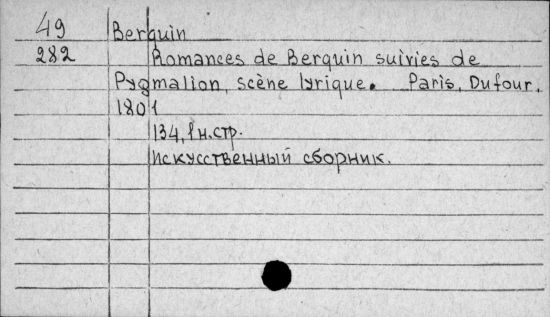 49 Berquin
282 Romances de Berquin suivies de
Pygmalion, scène lyrique. Paris, Dufour,
1801
134, 1 н.стр.
Искусственный сборник.